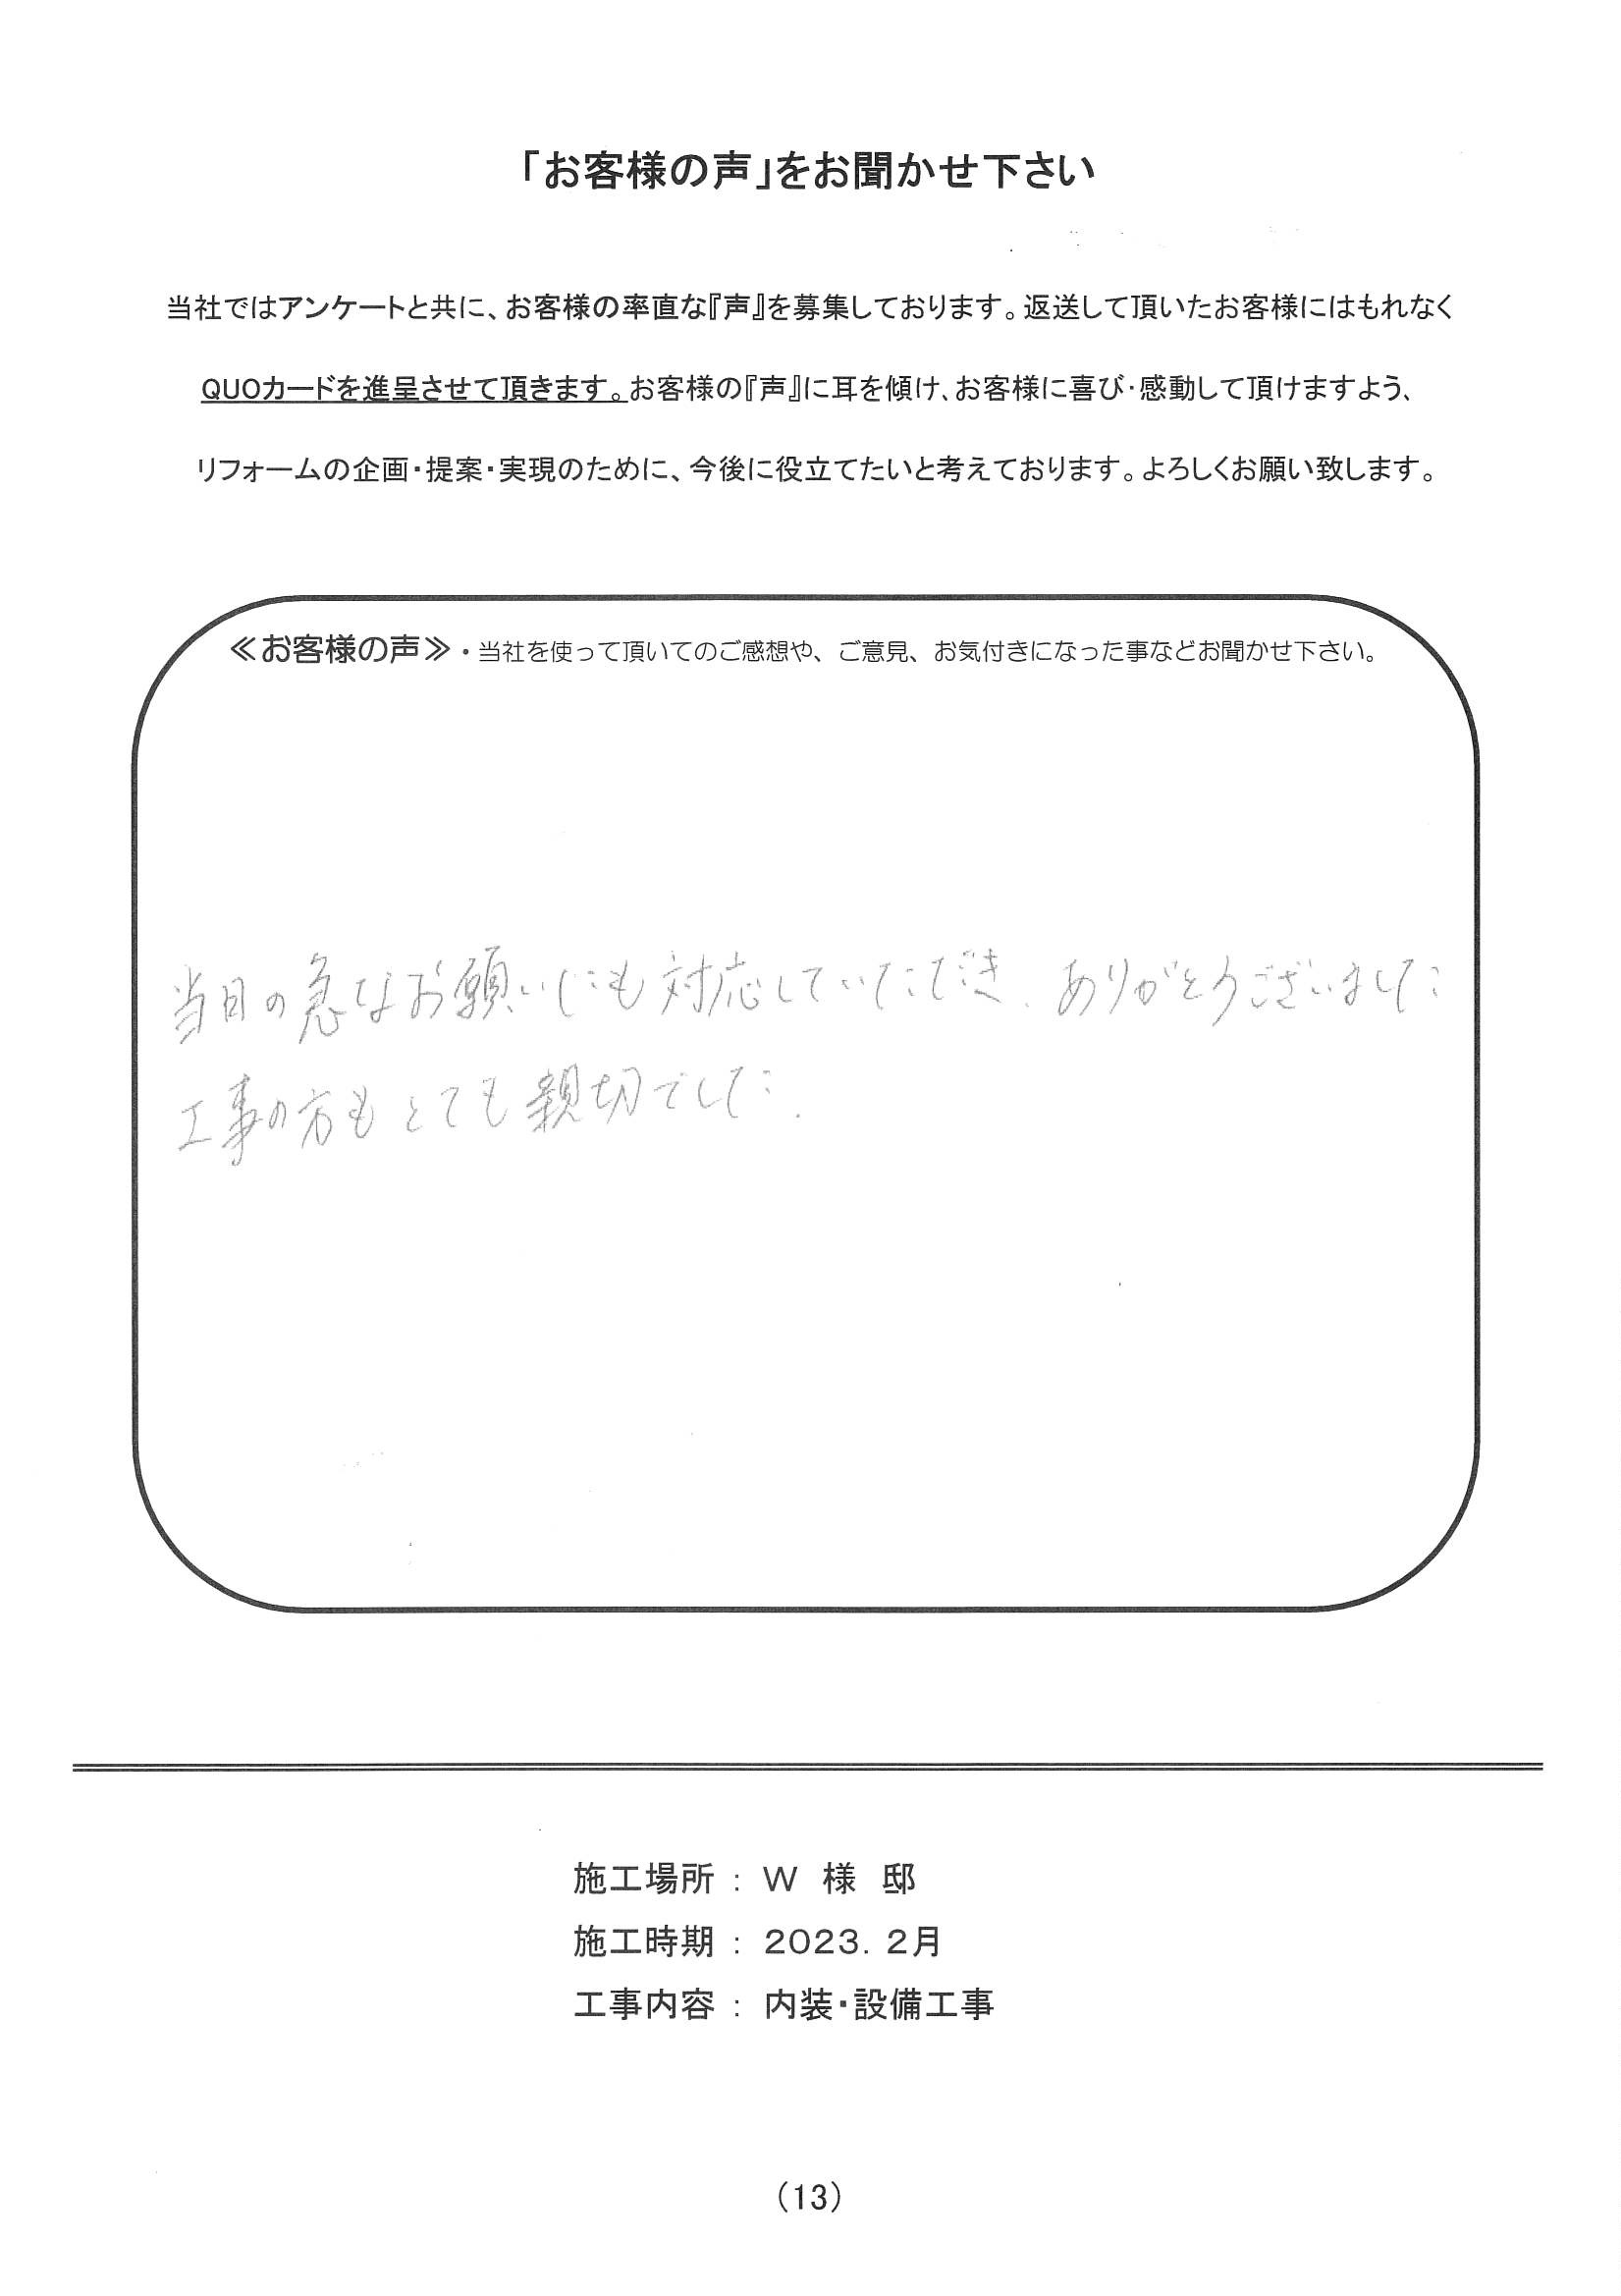 「お客様の声」をお聞かせ下さい
当社ではアンケートと共に、お客様の率直な『声』を募集しております。返送して頂いたお客様にはもれなく
QUOカードを進呈させて頂きます。お客様の『声』に耳を傾け、お客様に喜び・感動して頂けますよう、
リフォームの企画・提案・実現のために、今後に役立てたいと考えております。よろしくお願い致します。
≪お客様の声≫・当社を使って頂いてのご感想や、ご意見、お気付きになった事などお聞かせ下さい。
当日の急なお願いにも対応していただき、ありがとうございました
工事の方もとても親切でした.
施工場所 : W 様 邸
施工時期 : 2023. 2月
工事内容 : 内装・設備工事
(13)